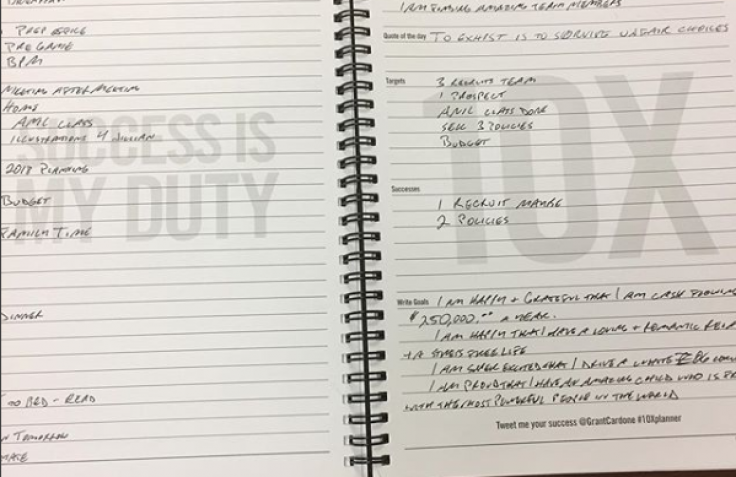 PREP OFFICE
PRE GAME
BPM
MEETING AFTER MEETING
HOME
AML CLASS
ILLUSTRATIONS 4 JILLIAN
SUCCESS IS
MY DUTY
2018 PLANNING
BUDGET
FAMILY TIME
DINNER
TOO BED - READ
TOMORROW
I AM FINDING AMAZING TEAM MEMBERS
Quote of the day TO EXHIST IS TO SURVIVE UNFAIR CHOICES
Targets 3 RECRUITS TEAM
1 PROSPECT
AML CLASS DONE
SELL 3 POLICIES
BUDGET
10X
Successes
1 RECRUIT MAYBE
2 POLICIES
Write Goals I AM HAPPY + GRATEFUL THAT I AM CASH FLOWING
$250,000.00 A YEAR.
I AM HAPPY THAT I HAVE A LOVING + ROMANTIC
FREE LIFE
I AM SUPER EXCITED THAT I DRIVE A WHITE
I AM PROUD THAT I HAVE AN AMAZING CHILD WHO IS
WITH THE MOST POWERFUL PEOPLE IN THE WORLD
Tweet me your success @GrantCardone #10Xplanner